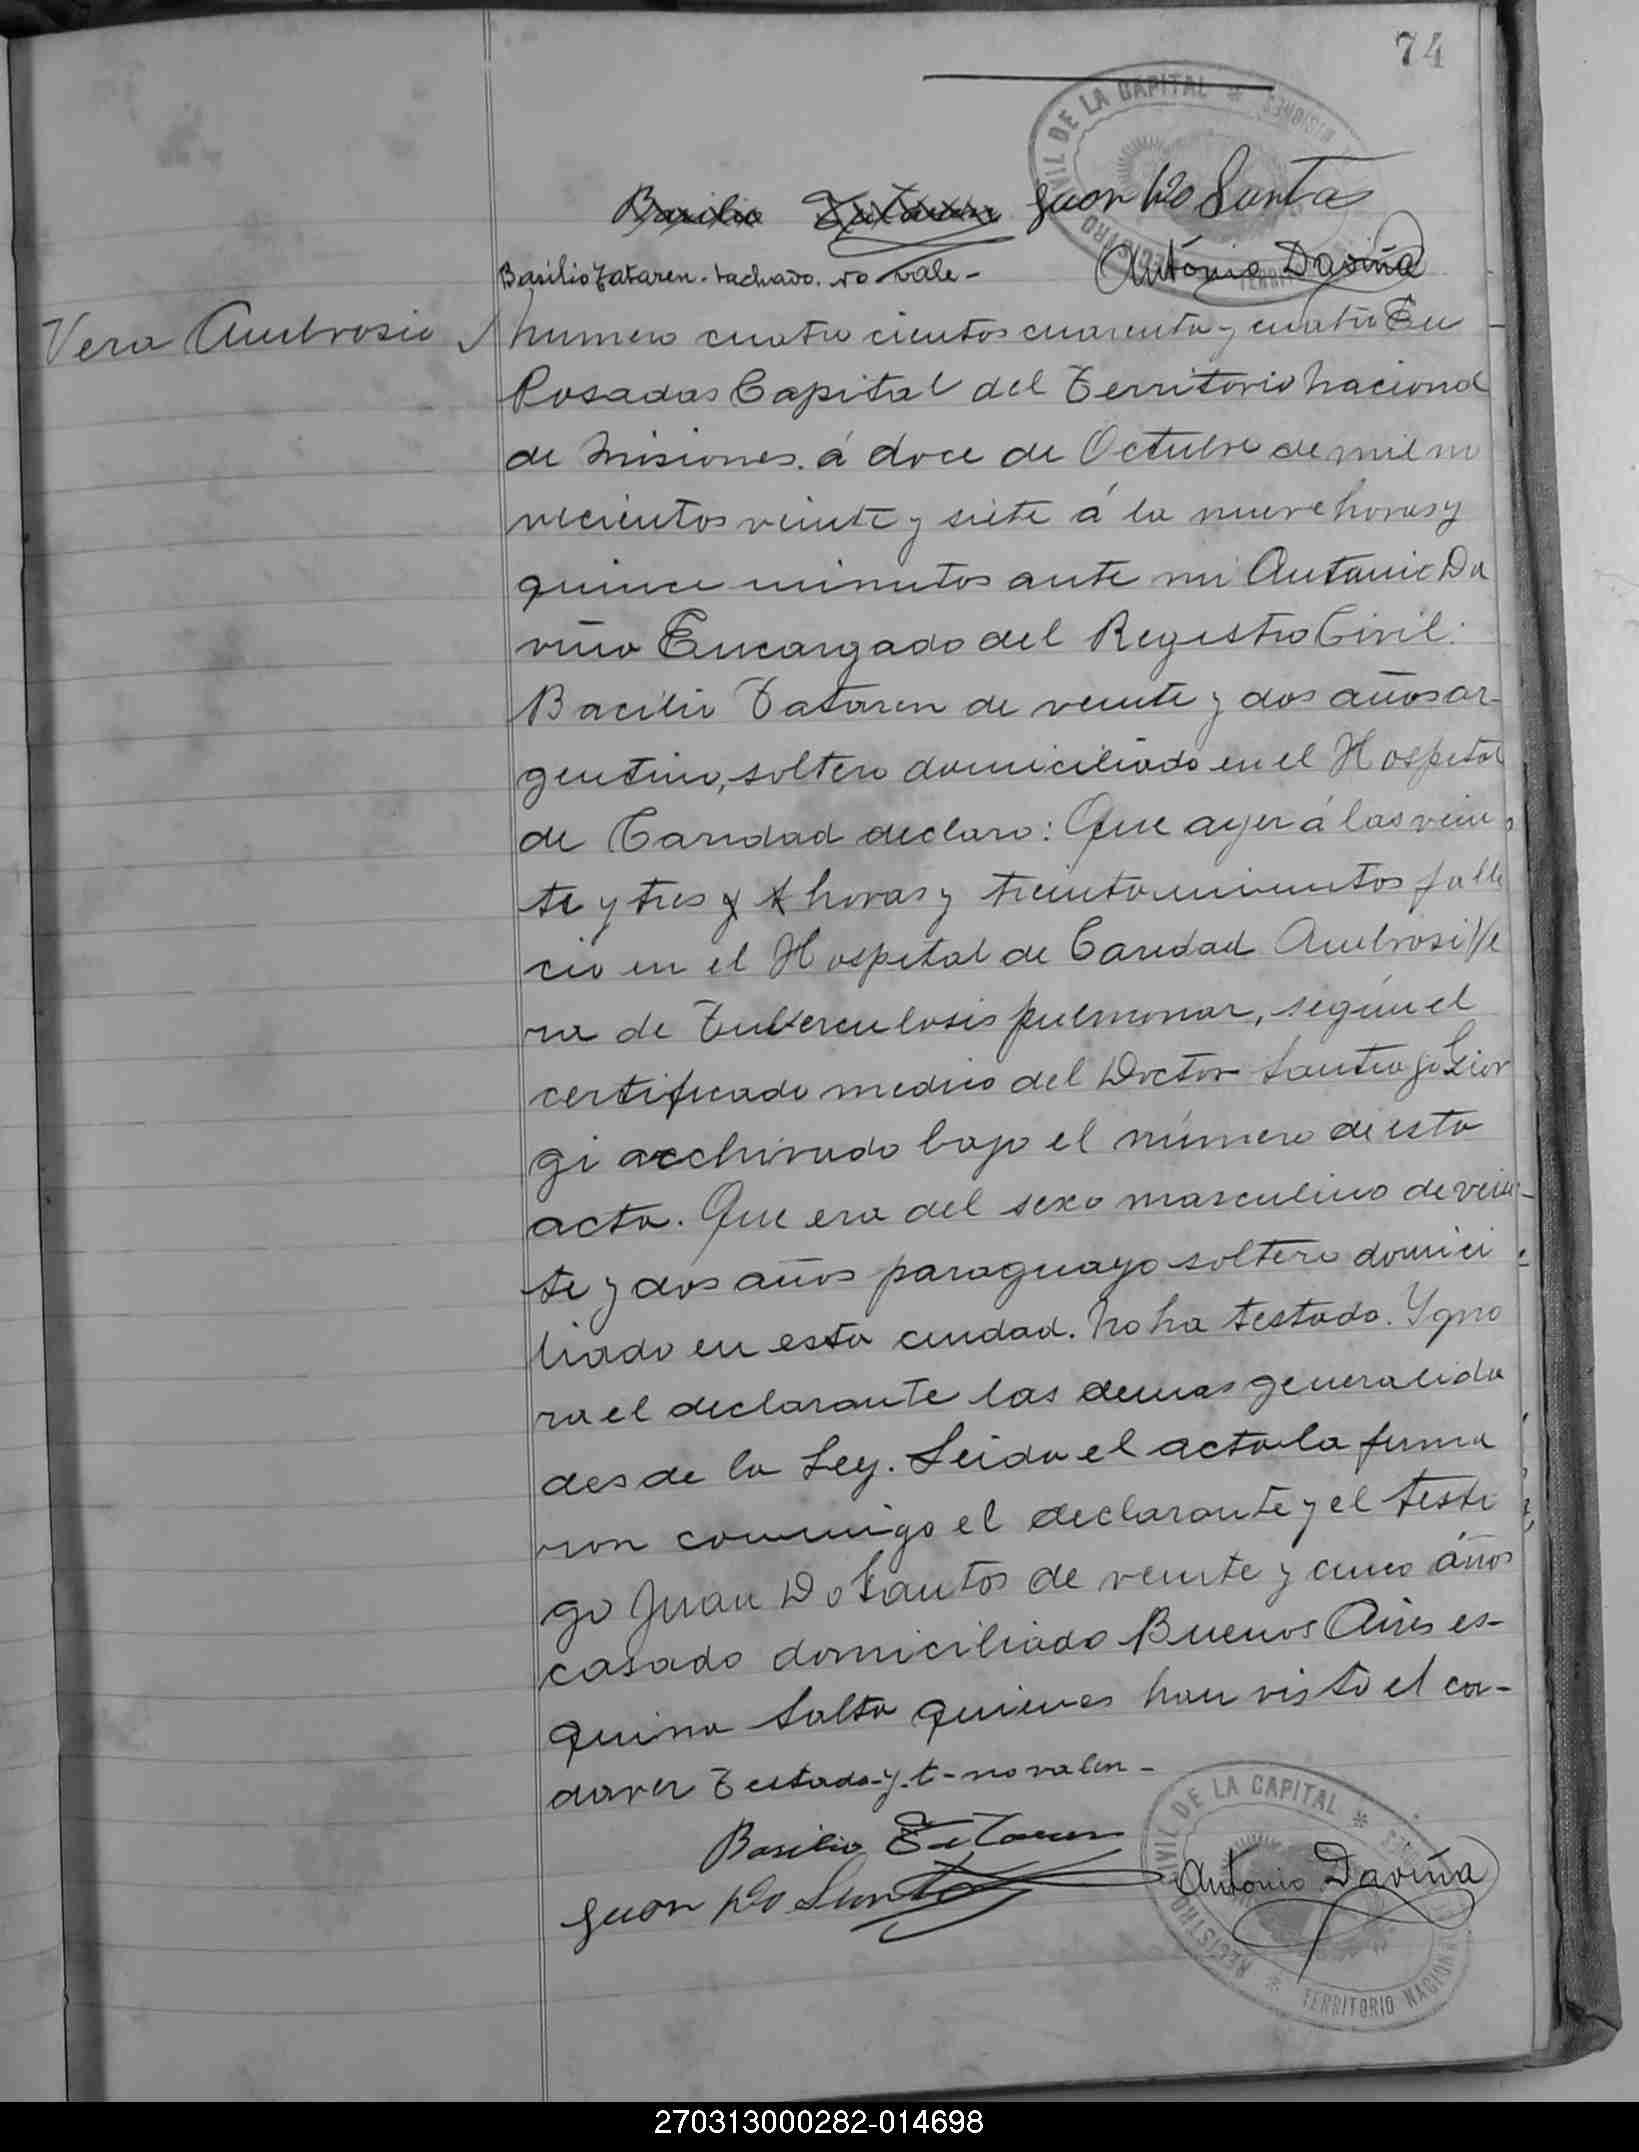 74
REGISTRO CIVIL DE LA CAPITAL * MISIONES
Basilio Tataren Juan Do Santos
Basilio Tataren - tachado. no vale -
Antonio Daviña
Vera Ambrosio
Numero cuatro cientos cuarenta y cuatro En
Posadas Capital del Territorio Nacional
de Misiones. á doce de Octubre de mil no
vecientos veinte y siete á la nueve horas y
quince minutos ante mi Antonio Da
viña Encargado del Registro Civil:
Bacilio Tataren de veinte y dos años ar-
gentino, soltero domiciliado en el Hospital
de Caridad declaro: Que ayer á las vein
te y tres y t horas y treinta minutos falle
cio en el Hospital de Caridad Ambrosio Ve
ra de Tuberculosis pulmonar, según el
certificado medico del Doctor Santiago Lior
gi acchivado bajo el número de esta
acta. Que era del sexo masculino de vein-
te y dos años paraguayo soltero domici
liado en esta ciudad. No ha testado. Ygno
ra el declarante las demas generalida
des de la Ley. Leida el acta la firma
ron conmigo el declarante y el testi
go Juan Do Santos de veinte y cinco años
casado domiciliado Buenos Aires es-
quina Salta quienes han visto el ca-
daver Testado-y-t-no valen-
Basilio Tataren
Juan Do Santos
Antonio Daviña
REGISTRO CIVIL DE LA CAPITAL * MISIONES
* TERRITORIO NACIONAL
270313000282-014698